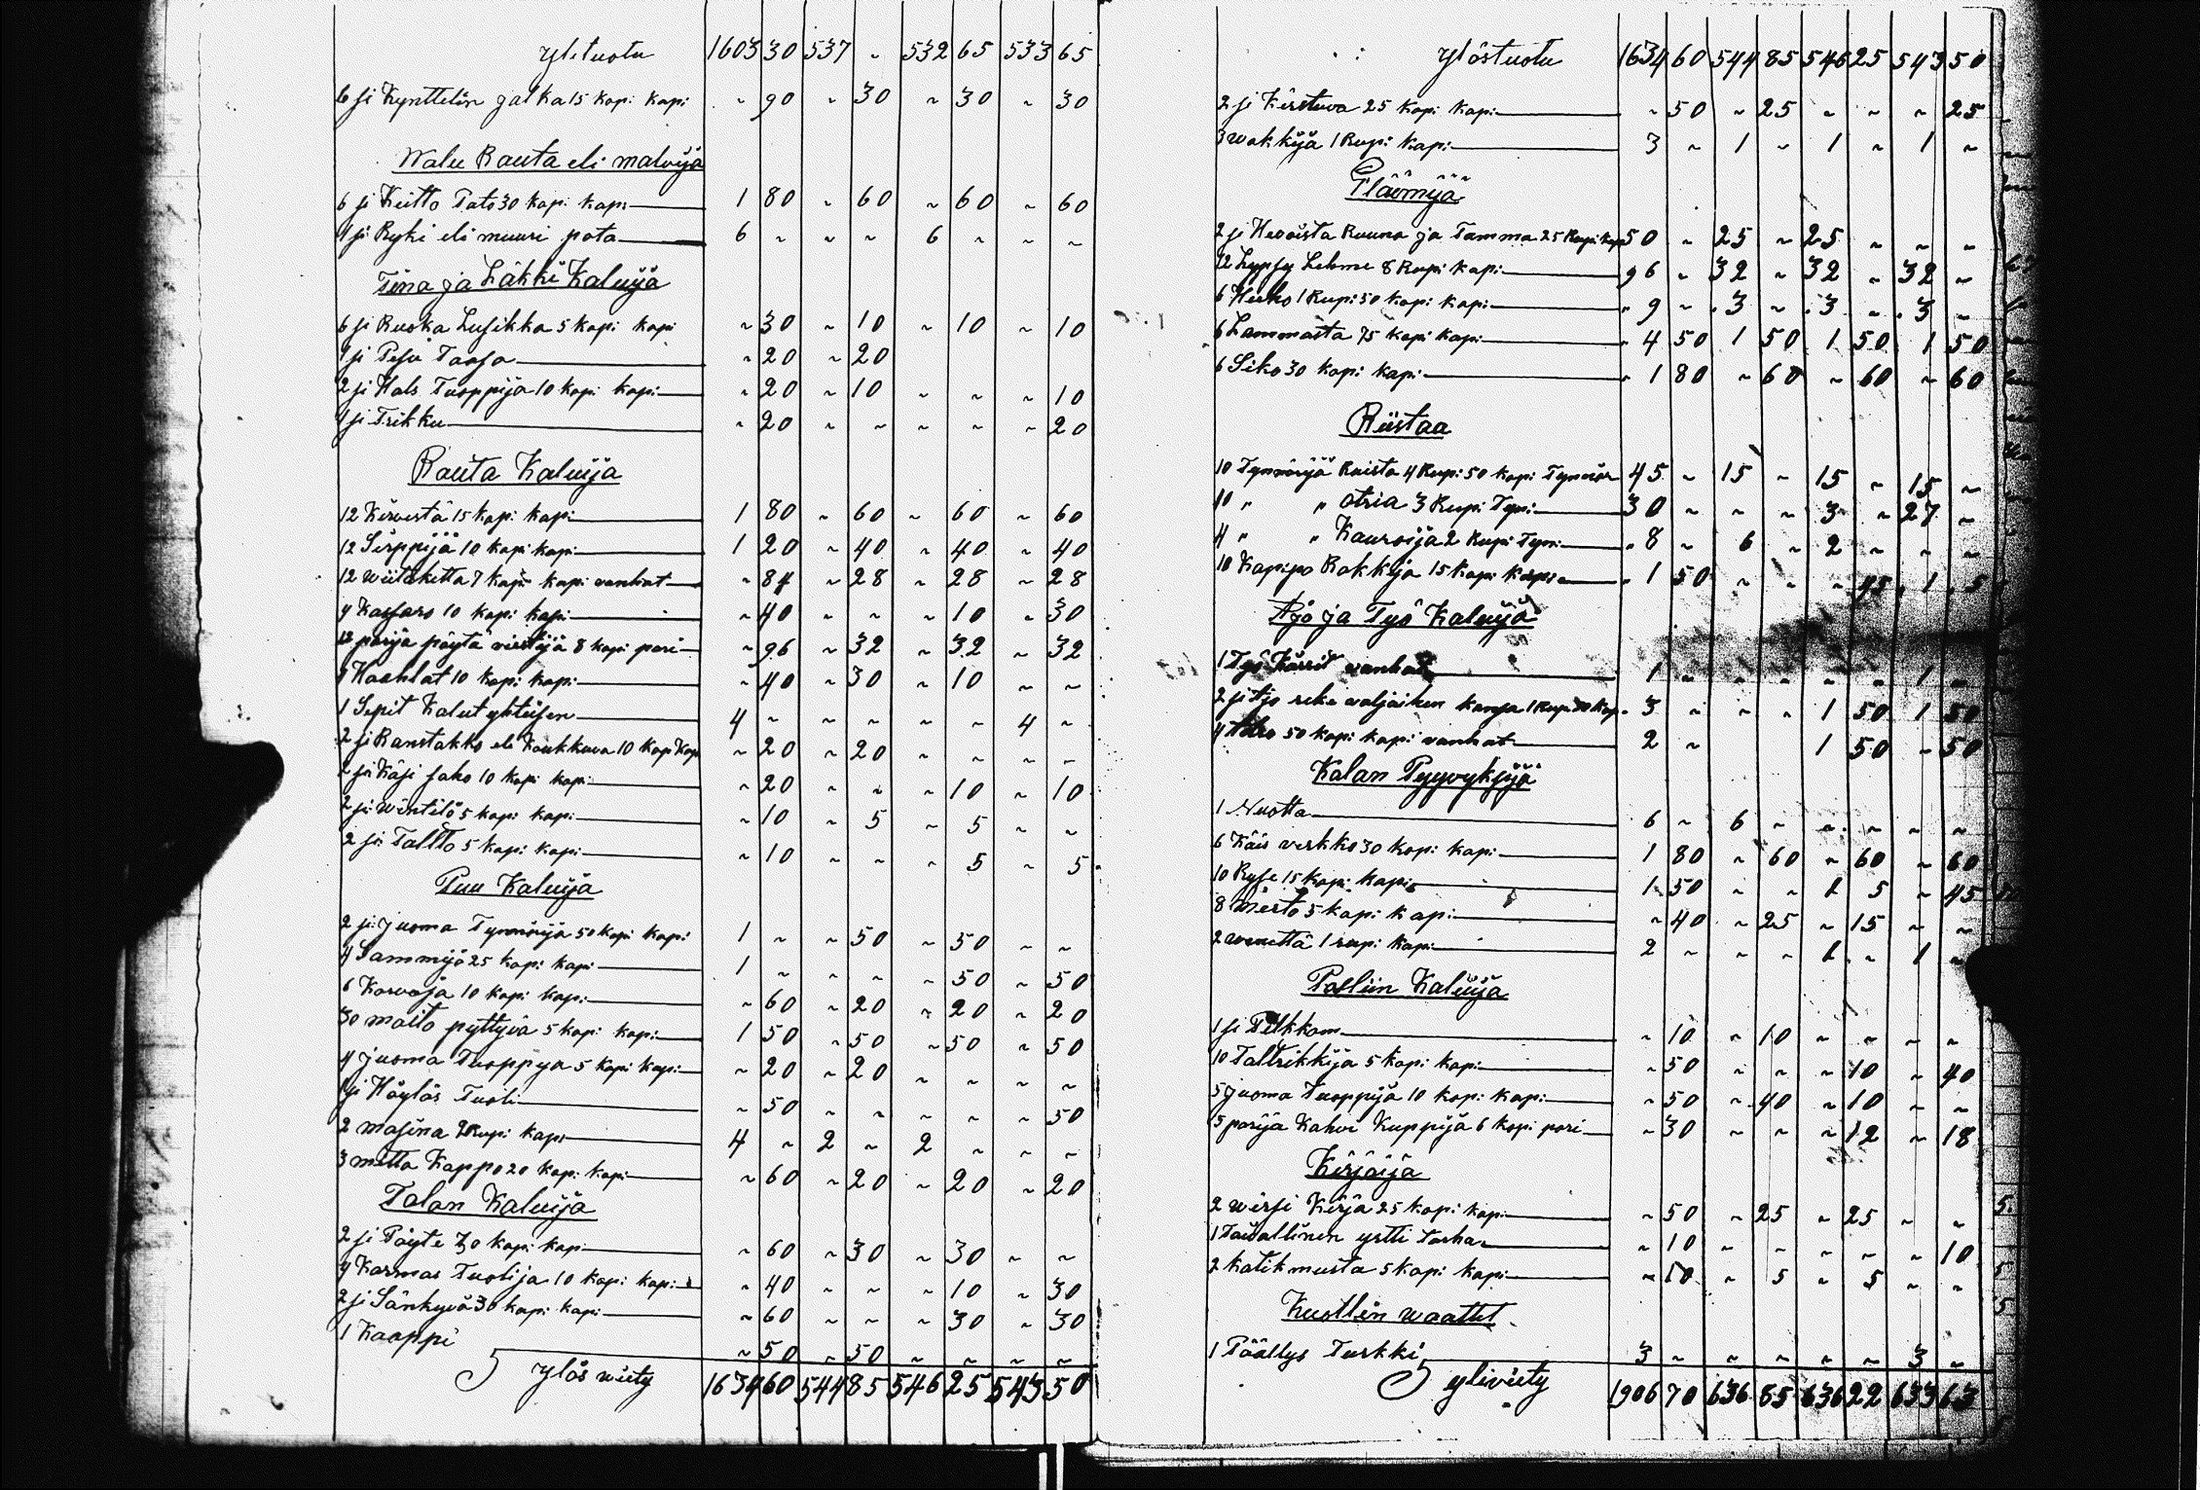 Ylituotu 1603 30 537 " 532 65 533 65
6 si Kynttelin jalka 15 kop: kapi " 90 " 30 " 30 " 30
Walu Rauta eli malmija
6 si Keitto Pato 30 kop: kapi 1 80 " 60 " 60 " 60
1 si Ryki eli muuri pata 6 " " " 6 " " "
Tina ja Läkki Kaluija
6 si Ruoka Lusikka 5 kopi kapi " 30 " 10 " 10 " 10
1 si Pesu " 20 " 20
2 si Hals Tuoppija 10 kopi kapi " 20 " 10 " " " 10
1 si Trikku " 20 " " " " " 20
Rauta Kaluija
12 Kirvestä 15 kop: kapi 1 80 " 60 " 60 " 60
12 Sirppijä 10 kopi kapi 1 20 " 40 " 40 " 40
12 wiitaketta 7 kopi kapi vanhat " 84 " 28 " 28 " 28
4 10 kopi kapi " 40 " " " 10 " 30
12 parija pöytä 8 kopi pari " 96 " 32 " 32 " 32
4 10 kopi kapi " 40 " 30 " 10 " "
1 Sepit Kalut yhteisen 4 " " " " " 4 "
2 si Ranstakko eli 10 kop kap " 20 " 20 " " " "
2 si Käsi saho 10 kopi kapi " 20 " " " 10 " 10
2 si wintilö 5 kopi kapi " 10 " 5 " 5 " "
2 si Taltto 5 kopi kapi " 10 " " " 5 " 5
Puu Kaluija
2 si juoma Tynnörijä 50 kopi kapi 1 " " 50 " 50 " "
4 Sammijo 25 kopi kapi 1 " " " " 50 " 50
6 Korvoja 10 kopi kapi " 60 " 20 " 20 " 20
30 maito pyttyiä 5 kopi kapi 1 50 " 50 " 50 " 50
4 juoma Tuoppya 5 kopi kapi " 20 " 20 " " " "
1 si Höyläs Tuoli " 50 " " " " " 50
2 masina 2 Rupi kapi 4 " 2 " 2 " " "
3 mitta Kappo 20 kopi kapi " 60 " 20 " 20 " 20
Talan Kaluija
2 si Pöyte 30 kopi kapi " 60 " 30 " 30 " "
4 Karmas Tuolija 10 kopi kapi " 40 " " " 10 " 30
2 si Sänkyvä 30 kopi kapi " 60 " " " 30 " 30
1 Kaappi " 50 " 50 " " " "
Ylös wiety 1634 60 544 85 546 25 543 50
Ylöstuotu 1634 60 544 85 546 25 543 50
2 si Kirstuva 25 kopi kapi " 50 " 25 " " " 25
3 wakkija 1 Rupi kapi 3 " 1 " 1 " 1 "
Eläömijä
2 si Hevoista Ruuna ja Tamma 25 Rupi kap 50 " 25 " 25 " " "
12 Lypsy Lehme 8 Rupi kapi 96 " 32 " 32 " 32 "
6 Hieho 1 Rupi 50 kopi kapi " 9 " 3 " 3 " 3 "
6 Lammasta 75 kopi kapi " 4 50 1 50 1 50 1 50
6 Siko 30 kopi kapi " 1 80 " 60 " 60 " 60
Riistaa
10 Tynnörijä Ruista 4 Rupi 50 kopi Tynnör 45 " 15 " 15 " 15 "
10 " " otria 3 Rupi Tyni 30 " " " 3 " 27 "
4 " " Kauroija 2 Rupi Tyni " 8 " 6 " 2 " " "
10 Kapipo Rokkija 15 kopi kapi " 1 50 " " " 45 1 5
Ajo ja Työ Kaluija
1 Työ Kärrit vanhat 1 " " " " " 1 "
2 si työ reke valjaiken kansa 1 Rupi 50 kop 3 " " " 1 50 1 50
4 50 kopi kapi vanhat 2 " 1 50 " 50
Kalan Pyyvyksijä
1 Nuotta 6 " 6 " " " " "
6 Käis verkko 30 kopi kapi 1 80 " 60 " 60 " 60
10 Ryse 15 kopi kapi 1 50 " " 1 5 " 45
8 Mërto 5 kopi kapi " 40 " 25 " 15 " "
2 wenettä 1 rupi kapi 2 " " " 1 " 1 "
Posliin Kaluija
1 si " 10 " 10 " " " "
10 Taltrikkija 5 kopi kapi " 50 " " " 10 " 40
5 juoma Tuoppija 10 kopi kapi " 50 " 40 " 10 " "
5 parija Kahvi Kuppijä 6 kopi pari " 30 " " " 12 " 18
Kirjoija
2 wirsi Kirja 25 kopi kap " 50 " 25 " 25 " "
1 Taivallinen yrtti Tarha " 10 " " " " " 10
2 katikmusta 5 kopi kapi " 10 " 5 " 5 " "
Kuollin waattet
1 Päällys Turkki 3 " " " " " 3 "
yliviety 1906 70 636 85 636 22 633 63